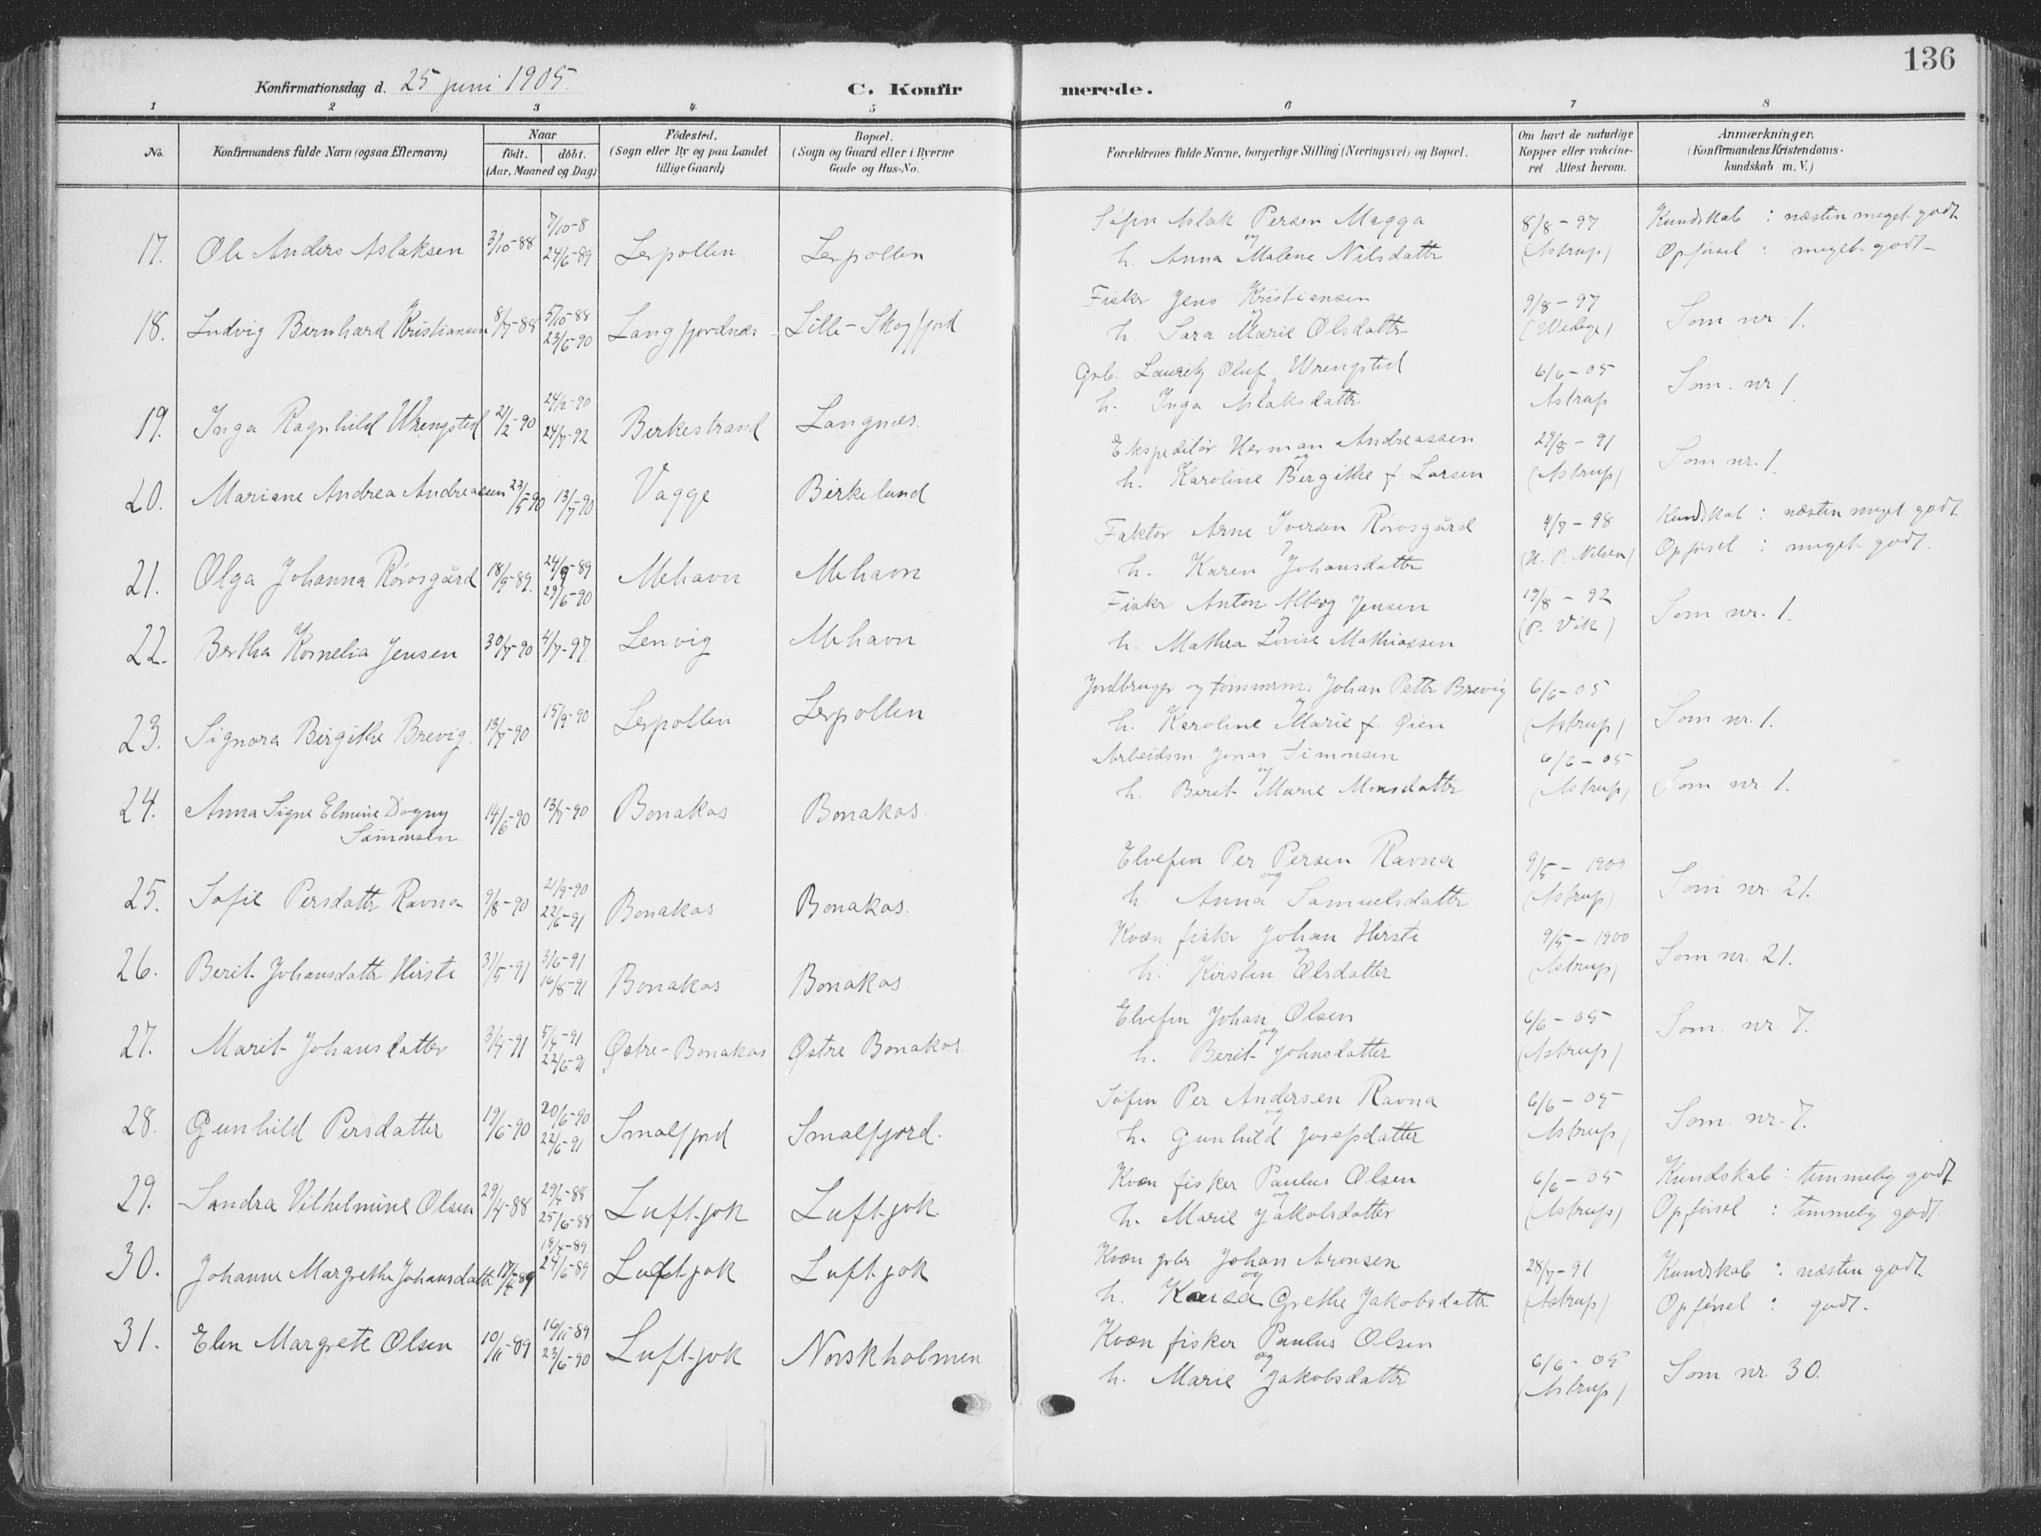 136
Konfirmationsdag d. 25 juni 1905.
C. Konfirmerede.
1 2 3 4 5 6 7 8
No.
Konfirmandens fulde Navn (ogsaa Efternavn)
Naar
født. døbt.
(Aar, Maaned og Dag)
Fødested.
(Sogn eller By og paa Landet
tillige Gaard)
Bopæl.
(Sogn og Gaard eller i Byerne
Gade og Hus-No.
Forældrenes fulde Navne, borgerlige Stilling (Næringsvei) og Bopæl.
Om havt de naturlige
Kopper eller vakcine-
ret Attest herom.
Anmærkninger.
(Konfirmandens Kristendoms-
kundskab m. V.)
17. Ole Anders Aslaksen 3/10-88 7/10-8 24/6-89 Lerpollen Lerpollen
Søfin Aslak Persen Magga
og
h. Anna Malene Nilsdatter
8/8-97
(Astrup)
Kundskab : næsten meget godt
Opførsel : meget godt
18. Ludvig Bernhard Kristiansen 8/7-88 5/10-88 23/6-90 Langfjordnæs Lille-Skogfjord
Fisker Jens Kristiansen
og
h. Sara Marie Olsdatter
9/8-97
(Wedege)
Som nr. 1.
19. Inga Ragnhild Wrengsted 2/2-90 24/2-90 24/7-92 Birkestrand Langnæs.
Grb. Lauritz Oluf Wrengsted
h. Inga Aslaksdatter
6/6-05
Astrup
Som. nr 1.
20. Mariane Andrea Andreasen 23/5-90 13/7-90 Vagge Birkelund
Ekspeditør Herman Andreassen
og
h. Karoline Birgithe f. Larsen
29/8-91
(Astrup)
Som nr. 1.
21. Olga Johanna Rørosgård 18/9-89. 24/9-89 29/6-90 Mehavn Mehavn
Faktor Arne Iversen Rørosgård
og
h. Karen Johansdatter
4/7-98
(H. P. Nilsen)
Kundskab : næsten meget godt
Opførsel : meget godt.
22. Bertha Kornelia Jensen 30/7-90 4/7-97. Lenvig Mehavn
Fisker Anton Alberg Jensen
og
h. Mathea Lovise Mathiassen
19/8-92
(P. Vik)
Som nr. 1.
23. Signora Birgithe Brevig. 13/7-90 15/9-90 Lerpollen Lerpollen
Jordbruger og tømmerm. Johan Petter Brevig
og
h. Karoline Marie f. Øien
6/6-05
(Astrup)
Som nr. 1.
24. Anna Signe Elmine Dagny
Samonsen
14/6-90 13/7-90 Bonakas Bonakas.
Arbeidsm. Jonas Simonsen
og
h. Berit Marie Monsdatter
6/6-05
(Astrup)
Som nr. 1.
25. Sofie Persdatter Ravna 9/8-90 21/9-90 22/6-91 Bonakas Bonakas.
Elvefin Per Persen Ravna
og
h. Anna Samuelsdatter
9/5-1900
(Astrup)
Som nr. 21.
26. Berit Johansdatter Hirsti 31/5-91 3/6-91 16/8-91 Bonakas Bonakas.
Kvæn fisker Johan Hirsti
og
h. Kirsten Olsdatter
9/5-1900
(Astrup)
Som nr. 21.
27. Marit Johansdatter 3/4-91 5/4-91 22/6-91 Østre-Bonakas Østre Bonakas.
Elvefin Johan Olsen
og
h. Berit Johnsdatter
6/6-05
(Astrup)
Som. nr. 7.
28. Gunhild Persdatter 19/6-90 20/6-90 22/6-91 Smalfjord Smalfjord.
Søfin Per Andersen Ravna
og
h. Gunhild Josefsdatter
6/6-05
(Astrup)
Som nr. 7.
29. Sandra Vilhelmine Olsen 29/4-88 29/4-88 25/6-88 Luftjok Luftjok
Kvæn fisker Paulus Olsen
og
h. Marie Jakobsdatter
6/6-05
(Astrup)
Kundskab : temmelig godt
Opførsel : temmelig godt.
30. Johanne Margrethe Johansdatter 17/4-89 18/4-89 24/6-89 Luftjok Luftjok
Kvæn grbr Johan Aronsen
og
h. Kaisa Grethe Jakobsdatter
28/7-91
(Astrup)
Kundskab : næsten godt
Opførsel : godt.
31. Elen Margrete Olsen 10/11-89 16/11-89 23/6-90 Luftjok Norskholmen
Kvæn fisker Paulus Olsen
og
h. Marie Jakobsdatter
6/6-05
(Astrup)
Som nr. 30.